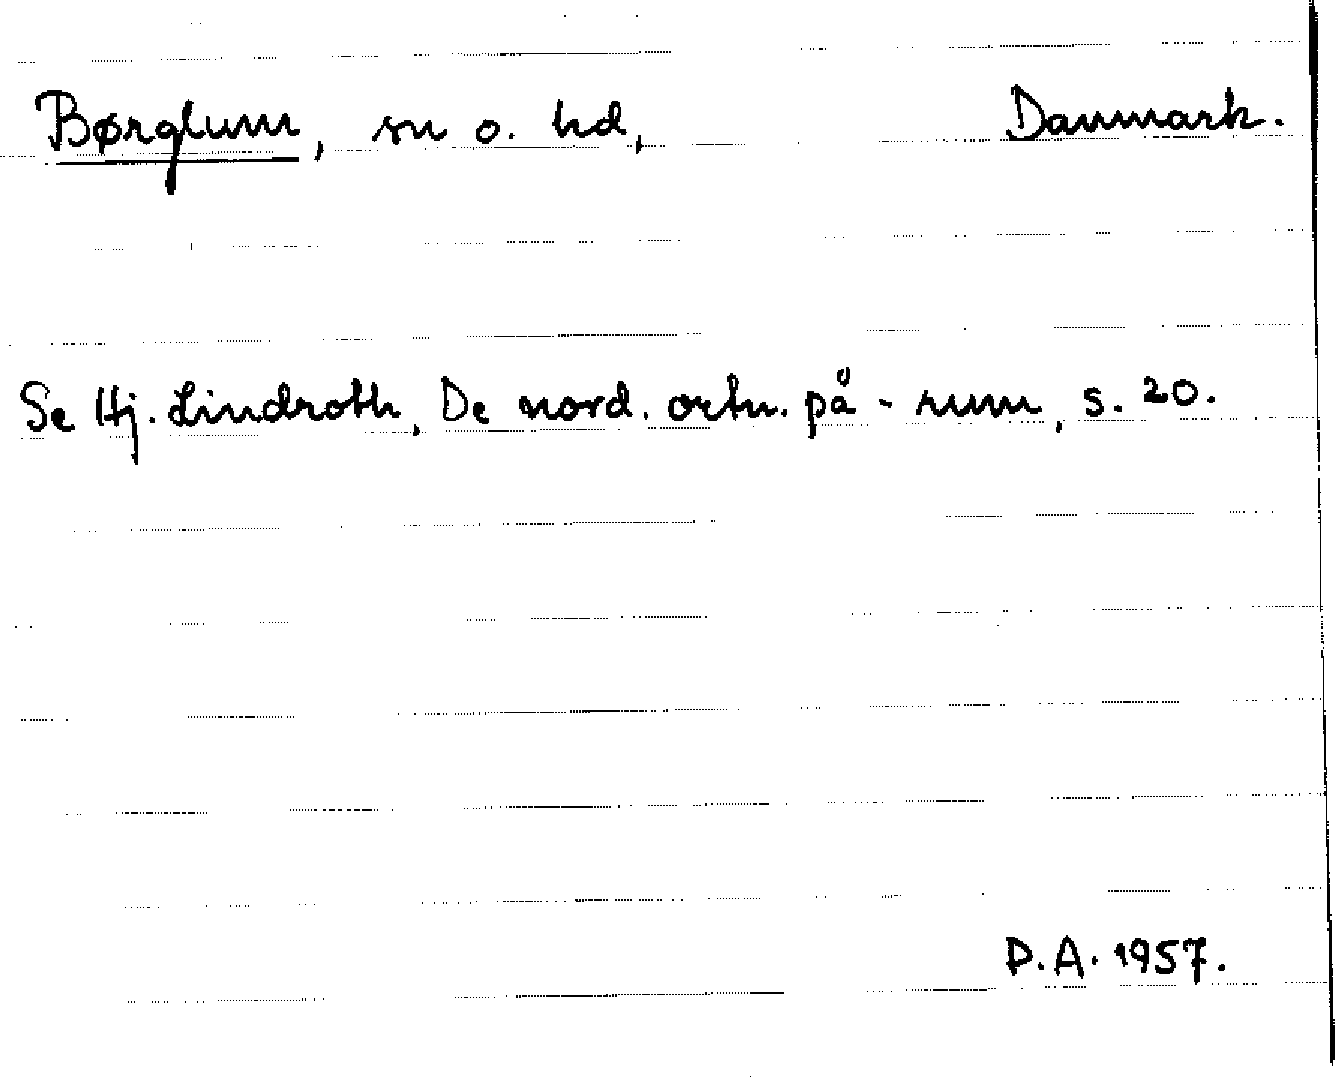 Børglum, sn o. hd, Danmark.
Se Hj. Lindroth, De nord. ortn. på -rum, s. 20.
D.A. 1957.